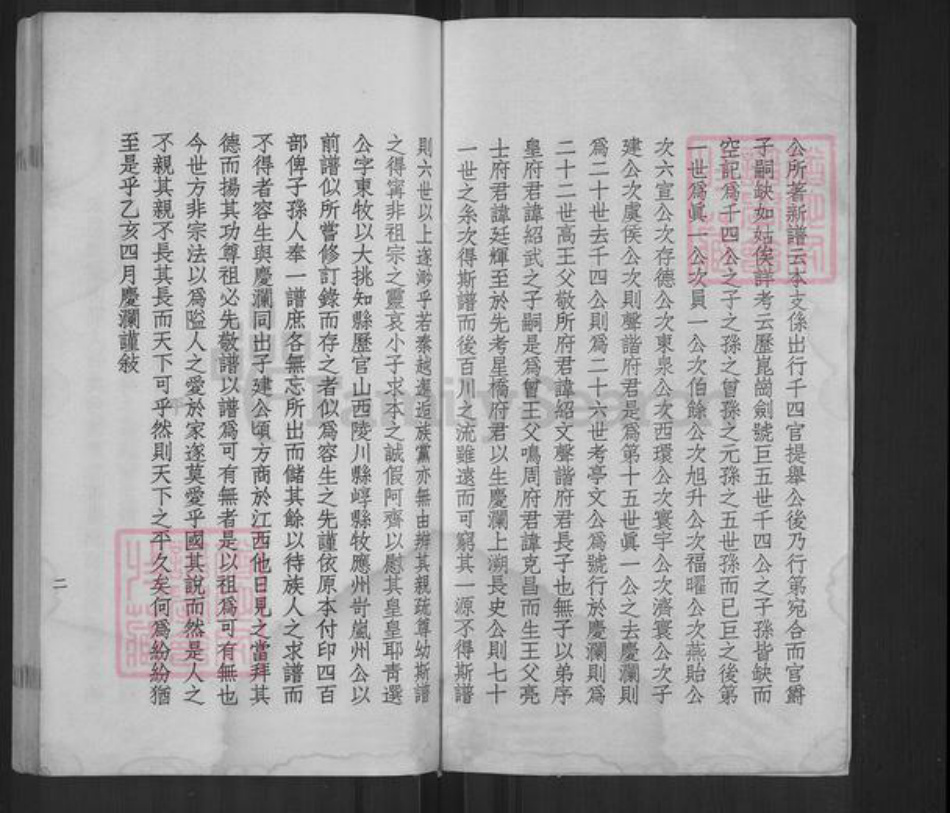 公所著新譜云本支係出行千四官提舉公後乃行第宛合而官爵
子嗣缺如姑俟詳考云歷崑崗劍號巨五世千四公之子孫皆缺而
空記為千四公之子之孫之曾孫之元孫之五世孫而已巨之後第
一世為眞一公次員一公次伯餘公次旭升公次福曜公次燕貽公
次六宣公次存德公次東泉公次西環公次寰宇公次濟寰公次子
建公次虞侯公次則聲諧府君是為第十五世眞一公之去慶瀾則
為二十世去千四公則為二十六世考亭文公為號行於慶瀾則為
二十二世高王父敬所府君諱紹文聲諧府君長子也無子以弟序
皇府君諱紹武之子嗣是為曾王父鳴周府君諱克昌而生王父亮
士府君諱廷輝至於先考星橋府君以生慶瀾上溯長史公則七十
一世之系次得斯譜而後百川之流雖遠而可窮其一源不得斯譜
則六世以上遂渺乎若秦越邂逅族黨亦無由辨其親疏尊幼斯譜
之得甯非祖宗之靈哀小子求本之誠假阿齊以慰其皇皇耶靑選
公字東牧以大挑知縣歷官山西陵川縣崞縣牧應州岢嵐州公以
前譜似所嘗修訂錄而存之者似為容生之先謹依原本付印四百
部俾子孫人奉一譜庶各無忘所出而儲其餘以待族人之求譜而
不得者容生與慶瀾同出子建公頃方商於江西他日見之當拜其
德而揚其功尊祖必先敬譜以譜為可有無者是以祖為可有無也
今世方非宗法以為隘人之愛於家遂莫愛乎國其說而然是人之
不親其親不長其長而天下可乎然則天下之平久矣何為紛紛猶
至是乎乙亥四月慶瀾謹敍
二